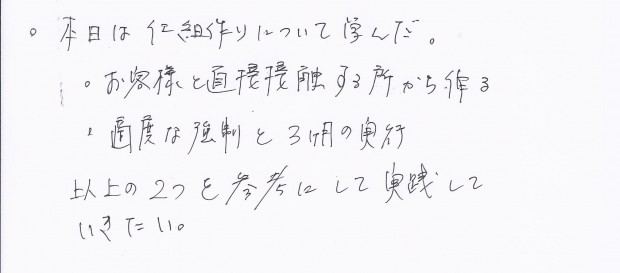 。本日は仕組作りについて学んだ。
。お客様と直接接触する所から作る
・適度な強制と3ヶ月の実行
以上の2つを参考にして実践して
いきたい。